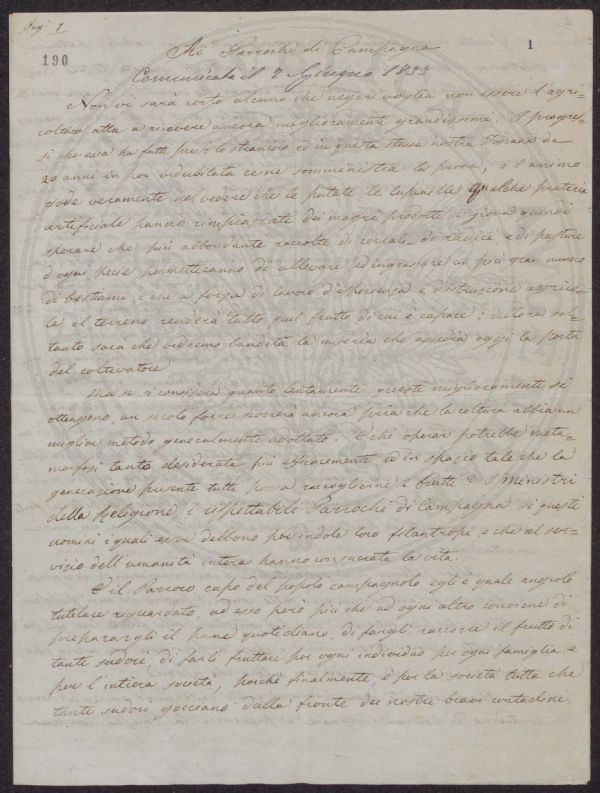 Pag. 1
190
1
Ai Parrochi di Campagna
Comunicata il 2 Giugno 1833
Non vi sarà certo alcuno che negar voglia non essere l'agri-
coltura atta a ricevere ancora miglioramenti grandissimi: I progres-
si che essa ha fatti presso lo straniero ed in questa stessa nostra Toscana da
20 anni in poi indubitata ce ne somministra la prova, e l'animo
gode veramente nel vedere che le patate, le lupinelle qualche prateria
artificiale hanno rimpiazzate dei magri prodotti: giova quindi
sperare che più abbondante raccolte di cereali di radici e di pasture
d'ogni specie permetteranno di allevare ed ingrassare un più gran numero
di bestiami, e che a forza di lavoro d'esperienza e d'istruzione agrico-
la il terreno renderà tutto quel frutto di cui è capace: allora sol-
tanto sarà che vedremo bandita la miseria che assedia oggi la porta
del coltivatore
Ma se si considera quanto lentamente questi miglioramenti si
ottengono, un secolo forse scorrerà ancora pria che la coltura abbia un
miglior metodo generalmente adottato. E chi operar potrebbe meta-
morfosi tanto desiderata più efficacemente ed in spazio tale che la
generazione presente tutti possa raccoglierne i frutti? I Ministri
della Religione, i rispettabili Parrochi di Campagna si questi
uomini i quali esser debbono per indole loro filantropi, e che al ser-
vizio dell'umanità intera hanno consacrata la vita.
È il Parroco capo del popolo campagnolo egli è quale angiolo
tutelare riguardato, ad esso però più che ad ogni altro conviene di
preparargli il pane quotidiano, di fargli raccorre il frutto di
tanti sudori, di farli fruttare per ogni individuo per ogni famiglia e
per l'intiera società, poichè finalmente è per la società tutta che
tanti sudori gocciano dalla fronte dei nostri bravi contadini.